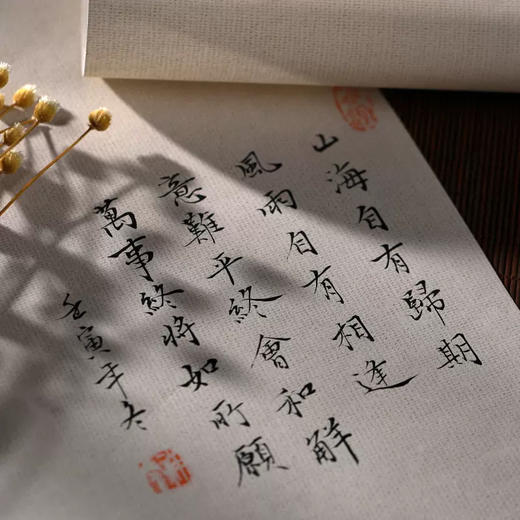 山海自有歸期
風雨自有相逢
意難平終會和解
萬事終將如所願
壬寅年冬